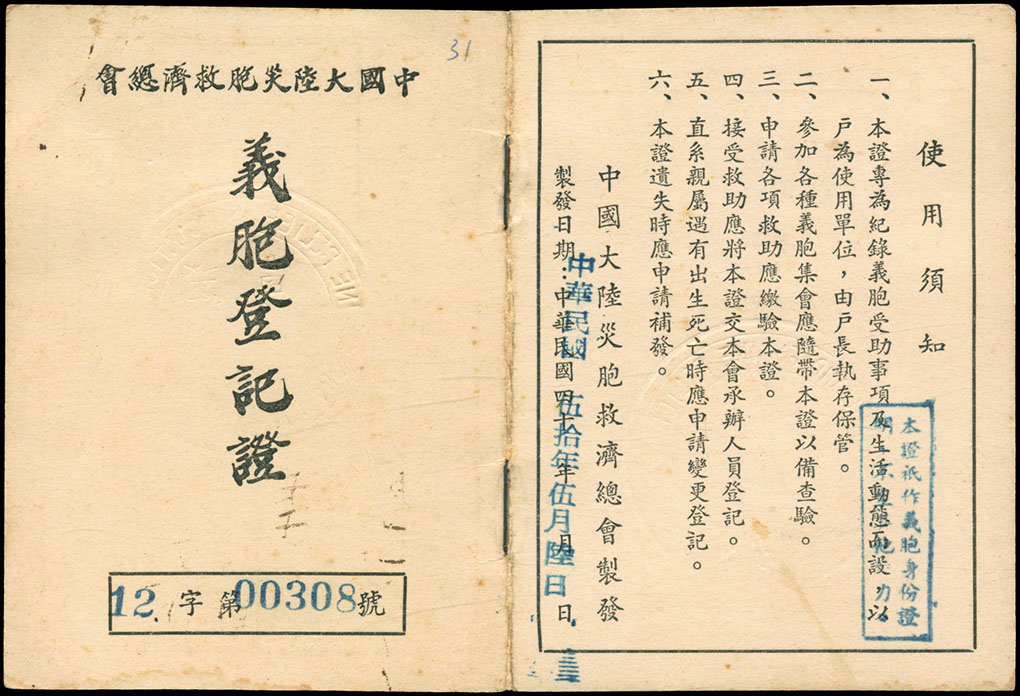 31
中國大陸災胞救濟總會
義胞登記證
12字第00308號
使用須知
一、本證專為紀錄義胞受助事項及生活動態而設，以
戶為使用單位，由戶長執存保管。
二、參加各種義胞集會應隨帶本證以備查驗。
三、申請各項救助應繳驗本證。
四、接受救助應將本證交本會承辦人員登記。
五、直系親屬遇有出生死亡時應申請變更登記。
六、本證遺失時應申請補發。
中國大陸災胞救濟總會製發
製發日期：中華民國四十 年 月 日
中華民國 伍拾年伍月陸日
本證祇作義胞身份證